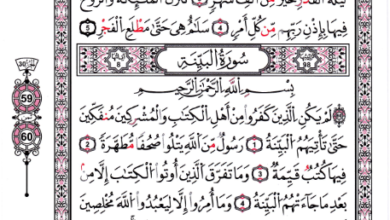 لَيْلَةُ ٱلْقَدْرِ خَيْرٌ مِّنْ أَلْفِ شَهْرٍ ٣ تَنَزَّلُ ٱلْمَلَٰٓئِكَةُ وَٱلرُّوحُ
فِيهَا بِإِذْنِ رَبِّهِم مِّن كُلِّ أَمْرٍ ٤ سَلَٰمٌ هِىَ حَتَّىٰ مَطْلَعِ ٱلْفَجْرِ ٥
سُورَةُ الْبَيِّنَةِ
بِسْمِ ٱللَّهِ ٱلرَّحْمَٰنِ ٱلرَّحِيمِ
لَمْ يَكُنِ ٱلَّذِينَ كَفَرُوا۟ مِنْ أَهْلِ ٱلْكِتَٰبِ وَٱلْمُشْرِكِينَ مُنفَكِّينَ
حَتَّىٰ تَأْتِيَهُمُ ٱلْبَيِّنَةُ ١ رَسُولٌ مِّنَ ٱللَّهِ يَتْلُوا۟ صُحُفًا مُّطَهَّرَةً ٢
فِيهَا كُتُبٌ قَيِّمَةٌ ٣ وَمَا تَفَرَّقَ ٱلَّذِينَ أُوتُوا۟ ٱلْكِتَٰبَ إِلَّا مِنۢ
بَعْدِ مَا جَآءَتْهُمُ ٱلْبَيِّنَةُ ٤ وَمَآ أُمِرُوٓا۟ إِلَّا لِيَعْبُدُوا۟ ٱللَّهَ مُخْلِصِينَ
59
60